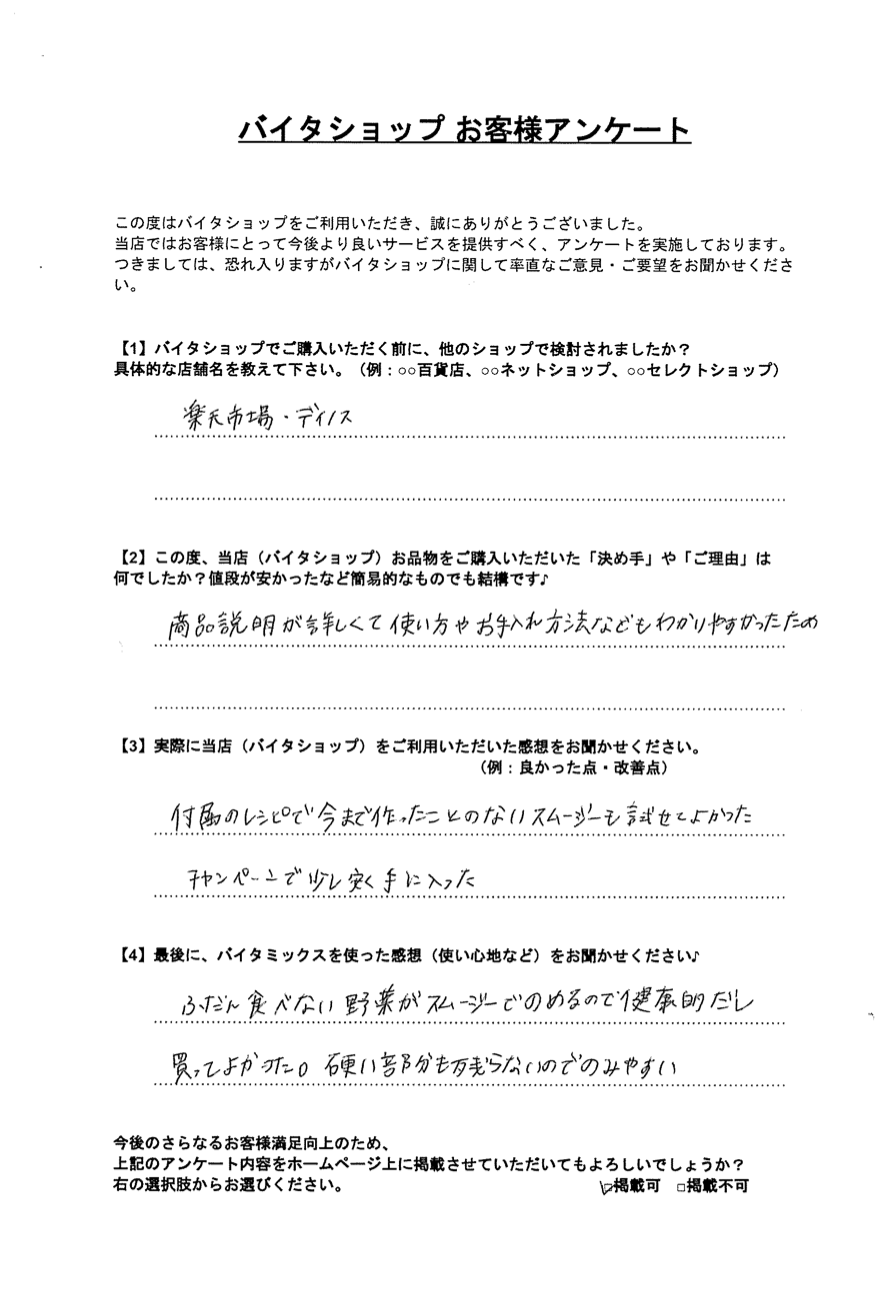 バイタショップ お客様アンケート
この度はバイタショップをご利用いただき、誠にありがとうございました。
当店ではお客様にとって今後より良いサービスを提供すべく、アンケートを実施しております。
つきましては、恐れ入りますがバイタショップに関して率直なご意見・ご要望をお聞かせくださ
い。
【1】バイタショップでご購入いただく前に、他のショップで検討されましたか？
具体的な店舗名を教えて下さい。（例：○○百貨店、○○ネットショップ、○○セレクトショップ）
楽天市場・ディノス
【2】この度、当店（バイタショップ）お品物をご購入いただいた「決め手」や「ご理由」は
何でしたか？値段が安かったなど簡易的なものでも結構です♪
商品説明が詳しくて使い方やお手入れ方法などもわかりやすかったため
【3】実際に当店（バイタショップ）をご利用いただいた感想をお聞かせください。
（例：良かった点・改善点）
付属のレシピで今まで作ったことのないスムージーも試せてよかった
キャンペーンで少し安く手に入った
【4】最後に、バイタミックスを使った感想（使い心地など）をお聞かせください♪
ふだん食べない野菜がスムージーでのめるので健康的だし
買ってよかった。硬い部分も残らないのでのみやすい
今後のさらなるお客様満足向上のため、
上記のアンケート内容をホームページ上に掲載させていただいてもよろしいでしょうか？
右の選択肢からお選びください。 ☑掲載可 □掲載不可